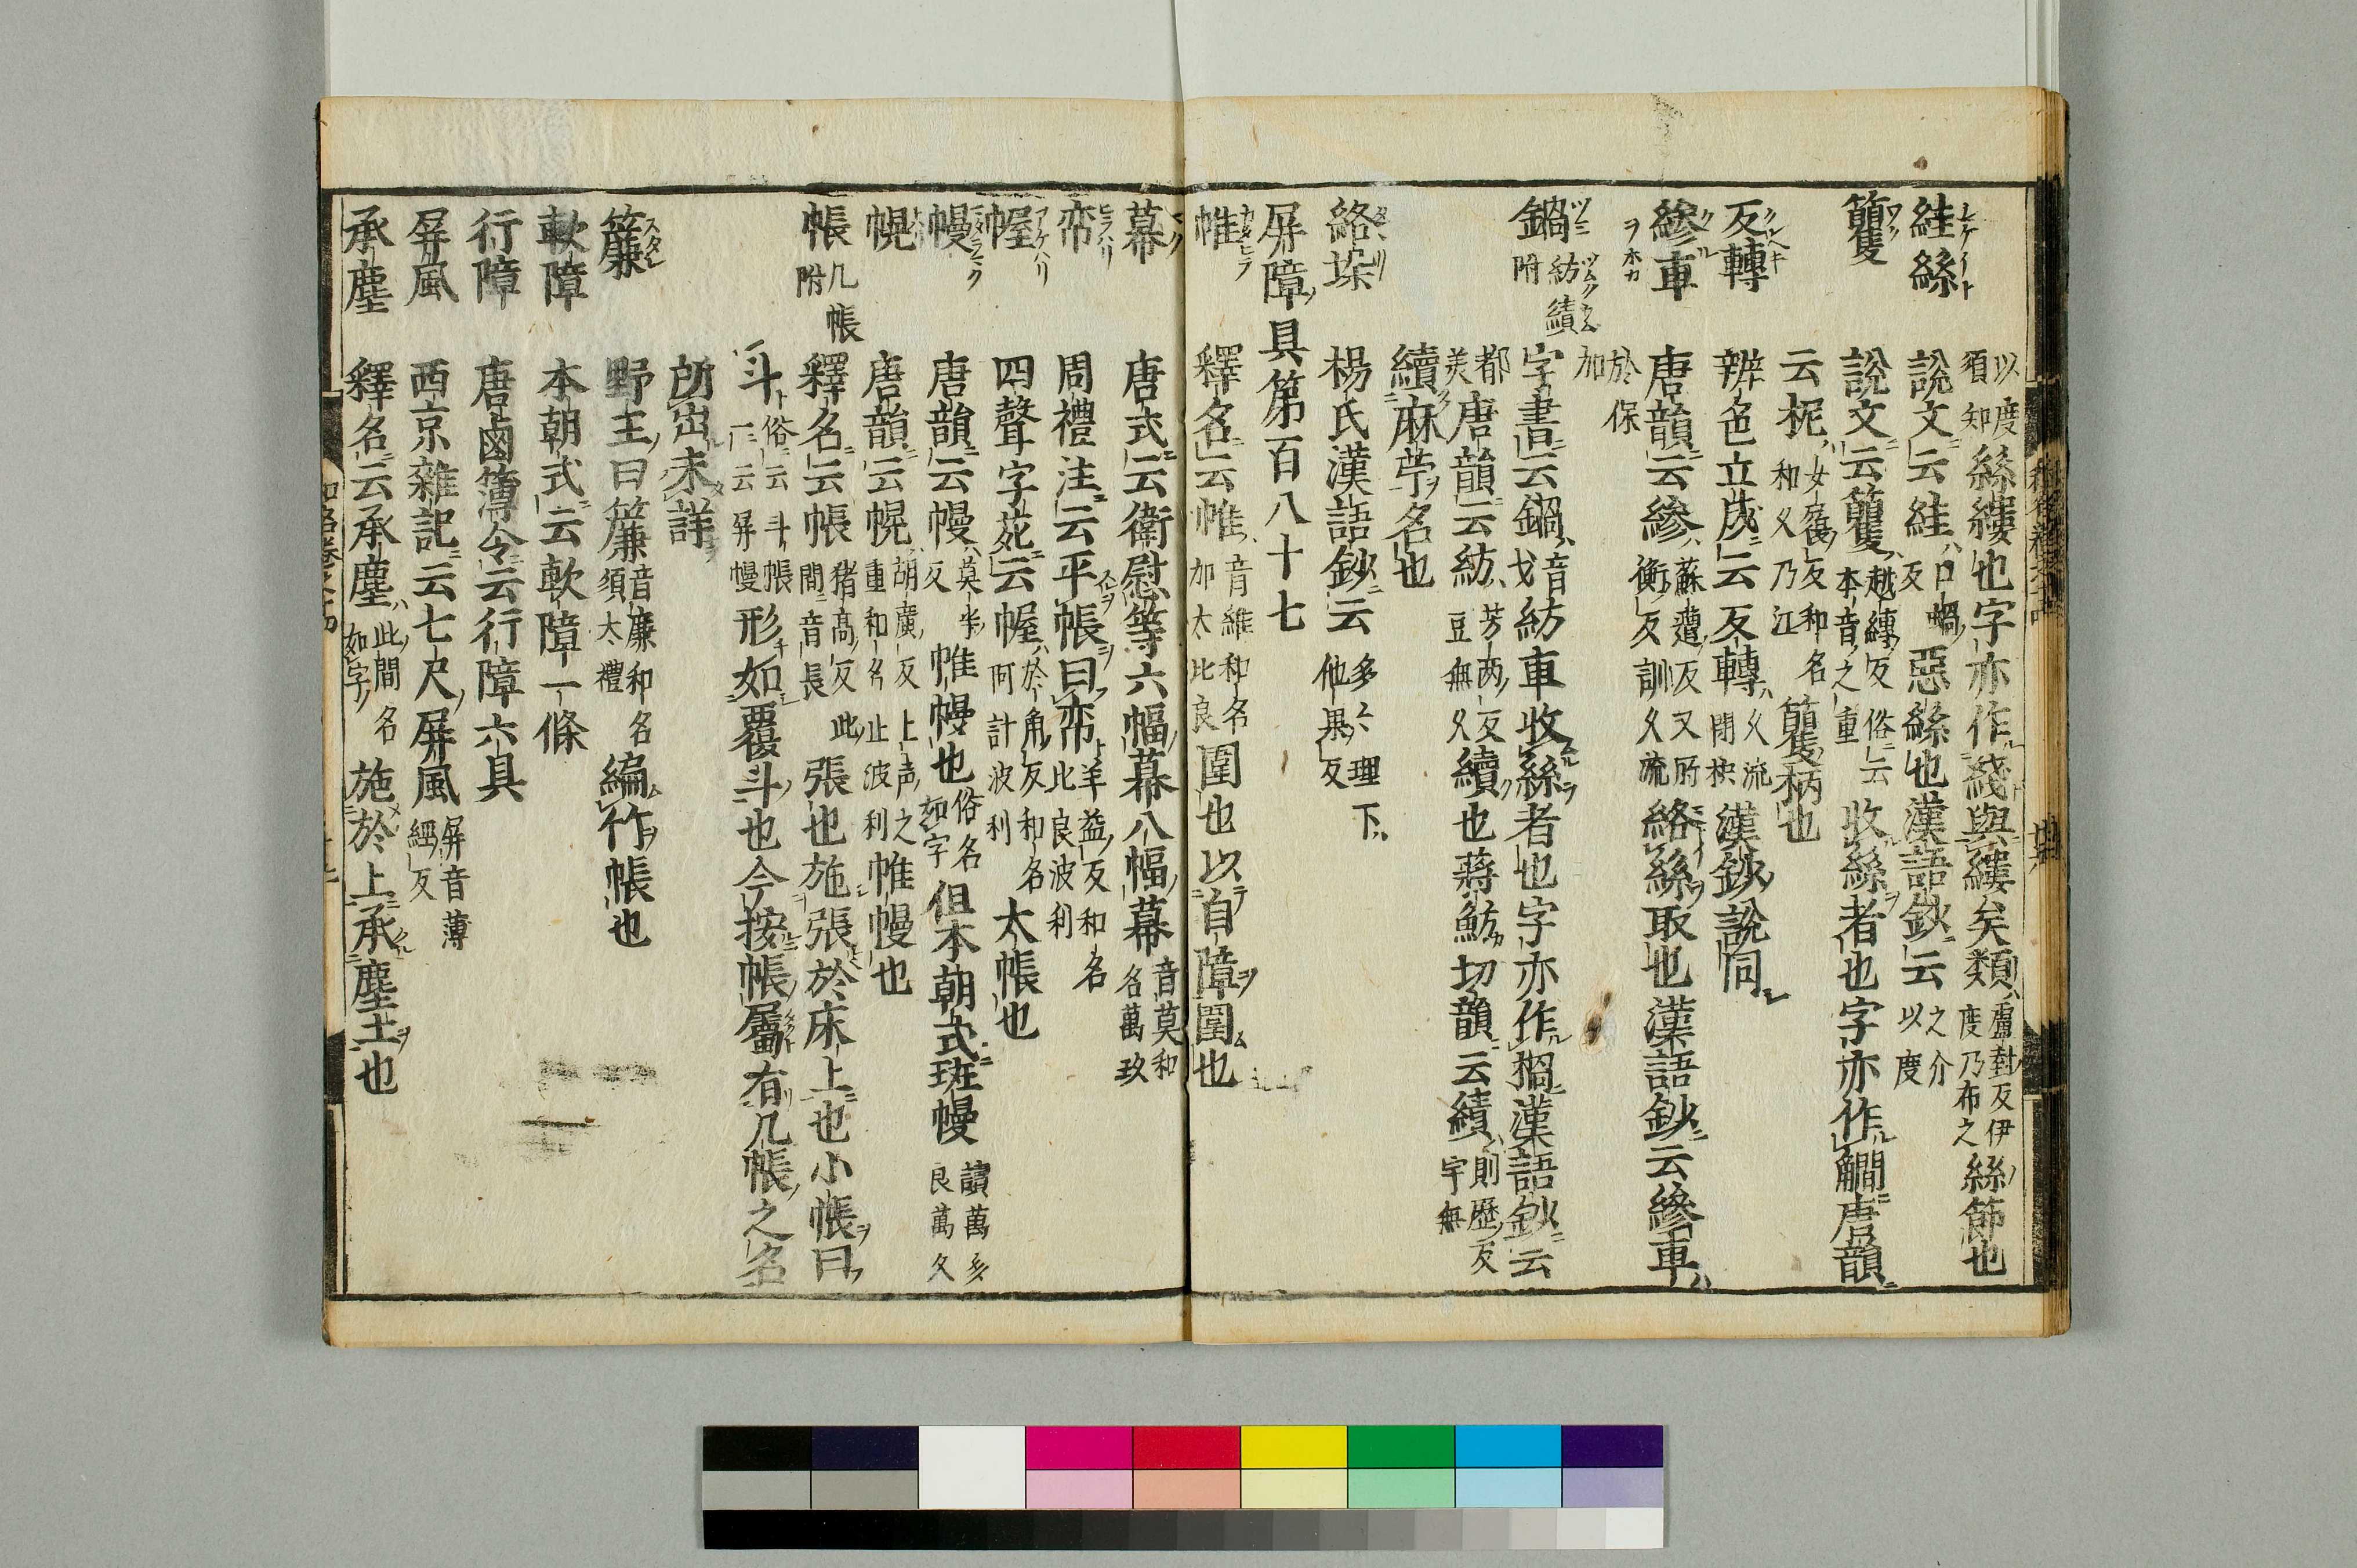 以度須知絲縷也字亦作綫與縷矣類盧對反伊度乃布之絲節也
絓絲 說文云絓口蝸反惡絲也漢語鈔云之介以度
籰 說文云籰越縛反俗云本音之重收絲者也字亦作䌫唐韻
云柅女履反和名和久乃江籰柄也
反轉 辨色立成云反轉久流閇枳漢鈔說同
繰車 唐韻云繰蘇遭反又所衡反訓久流絡絲取也漢語鈔云繰車
於保加
鍋紡績附 字書云鍋音戈紡車收絲者也字亦作楇漢語鈔云
都美唐韻云紡芳两反豆無久續也蔣魴切韻云績則歷反宇無
續麻苧名也
絡垜 楊氏漢語鈔云多々理下他果反
屏障具第百八十七
帷 釋名云帷音維和名加太比良圍也以自障圍也
幕 唐式云衛慰等六幅幕八幅幕音莫和名萬玖
帟 周禮注云平帳曰帟羊益反和名比良波利
幄 四聲字苑云幄於角反和名阿計波利太帳也
幔 唐韻云幔莫半反帷幔也俗名如字但本朝式斑幔讀萬多良萬久
幌 唐韻云幌胡廣反上声之重和名止波利帷幔也
帳几帳附 釋名云帳猪高反此間音長張也施張於床上也小帳曰
斗俗云斗帳一云屏幔形如覆斗也今按帳屬有几帳之名
所出未詳
簾 野王曰簾音廉和名須太禮編竹帳也
軟障 本朝式云軟障一條
行障 唐鹵簿令云行障六具
屏風 西京雜記云七尺屏風屏音薄經反
承塵 釋名云承塵此間名如字施於上承塵土也